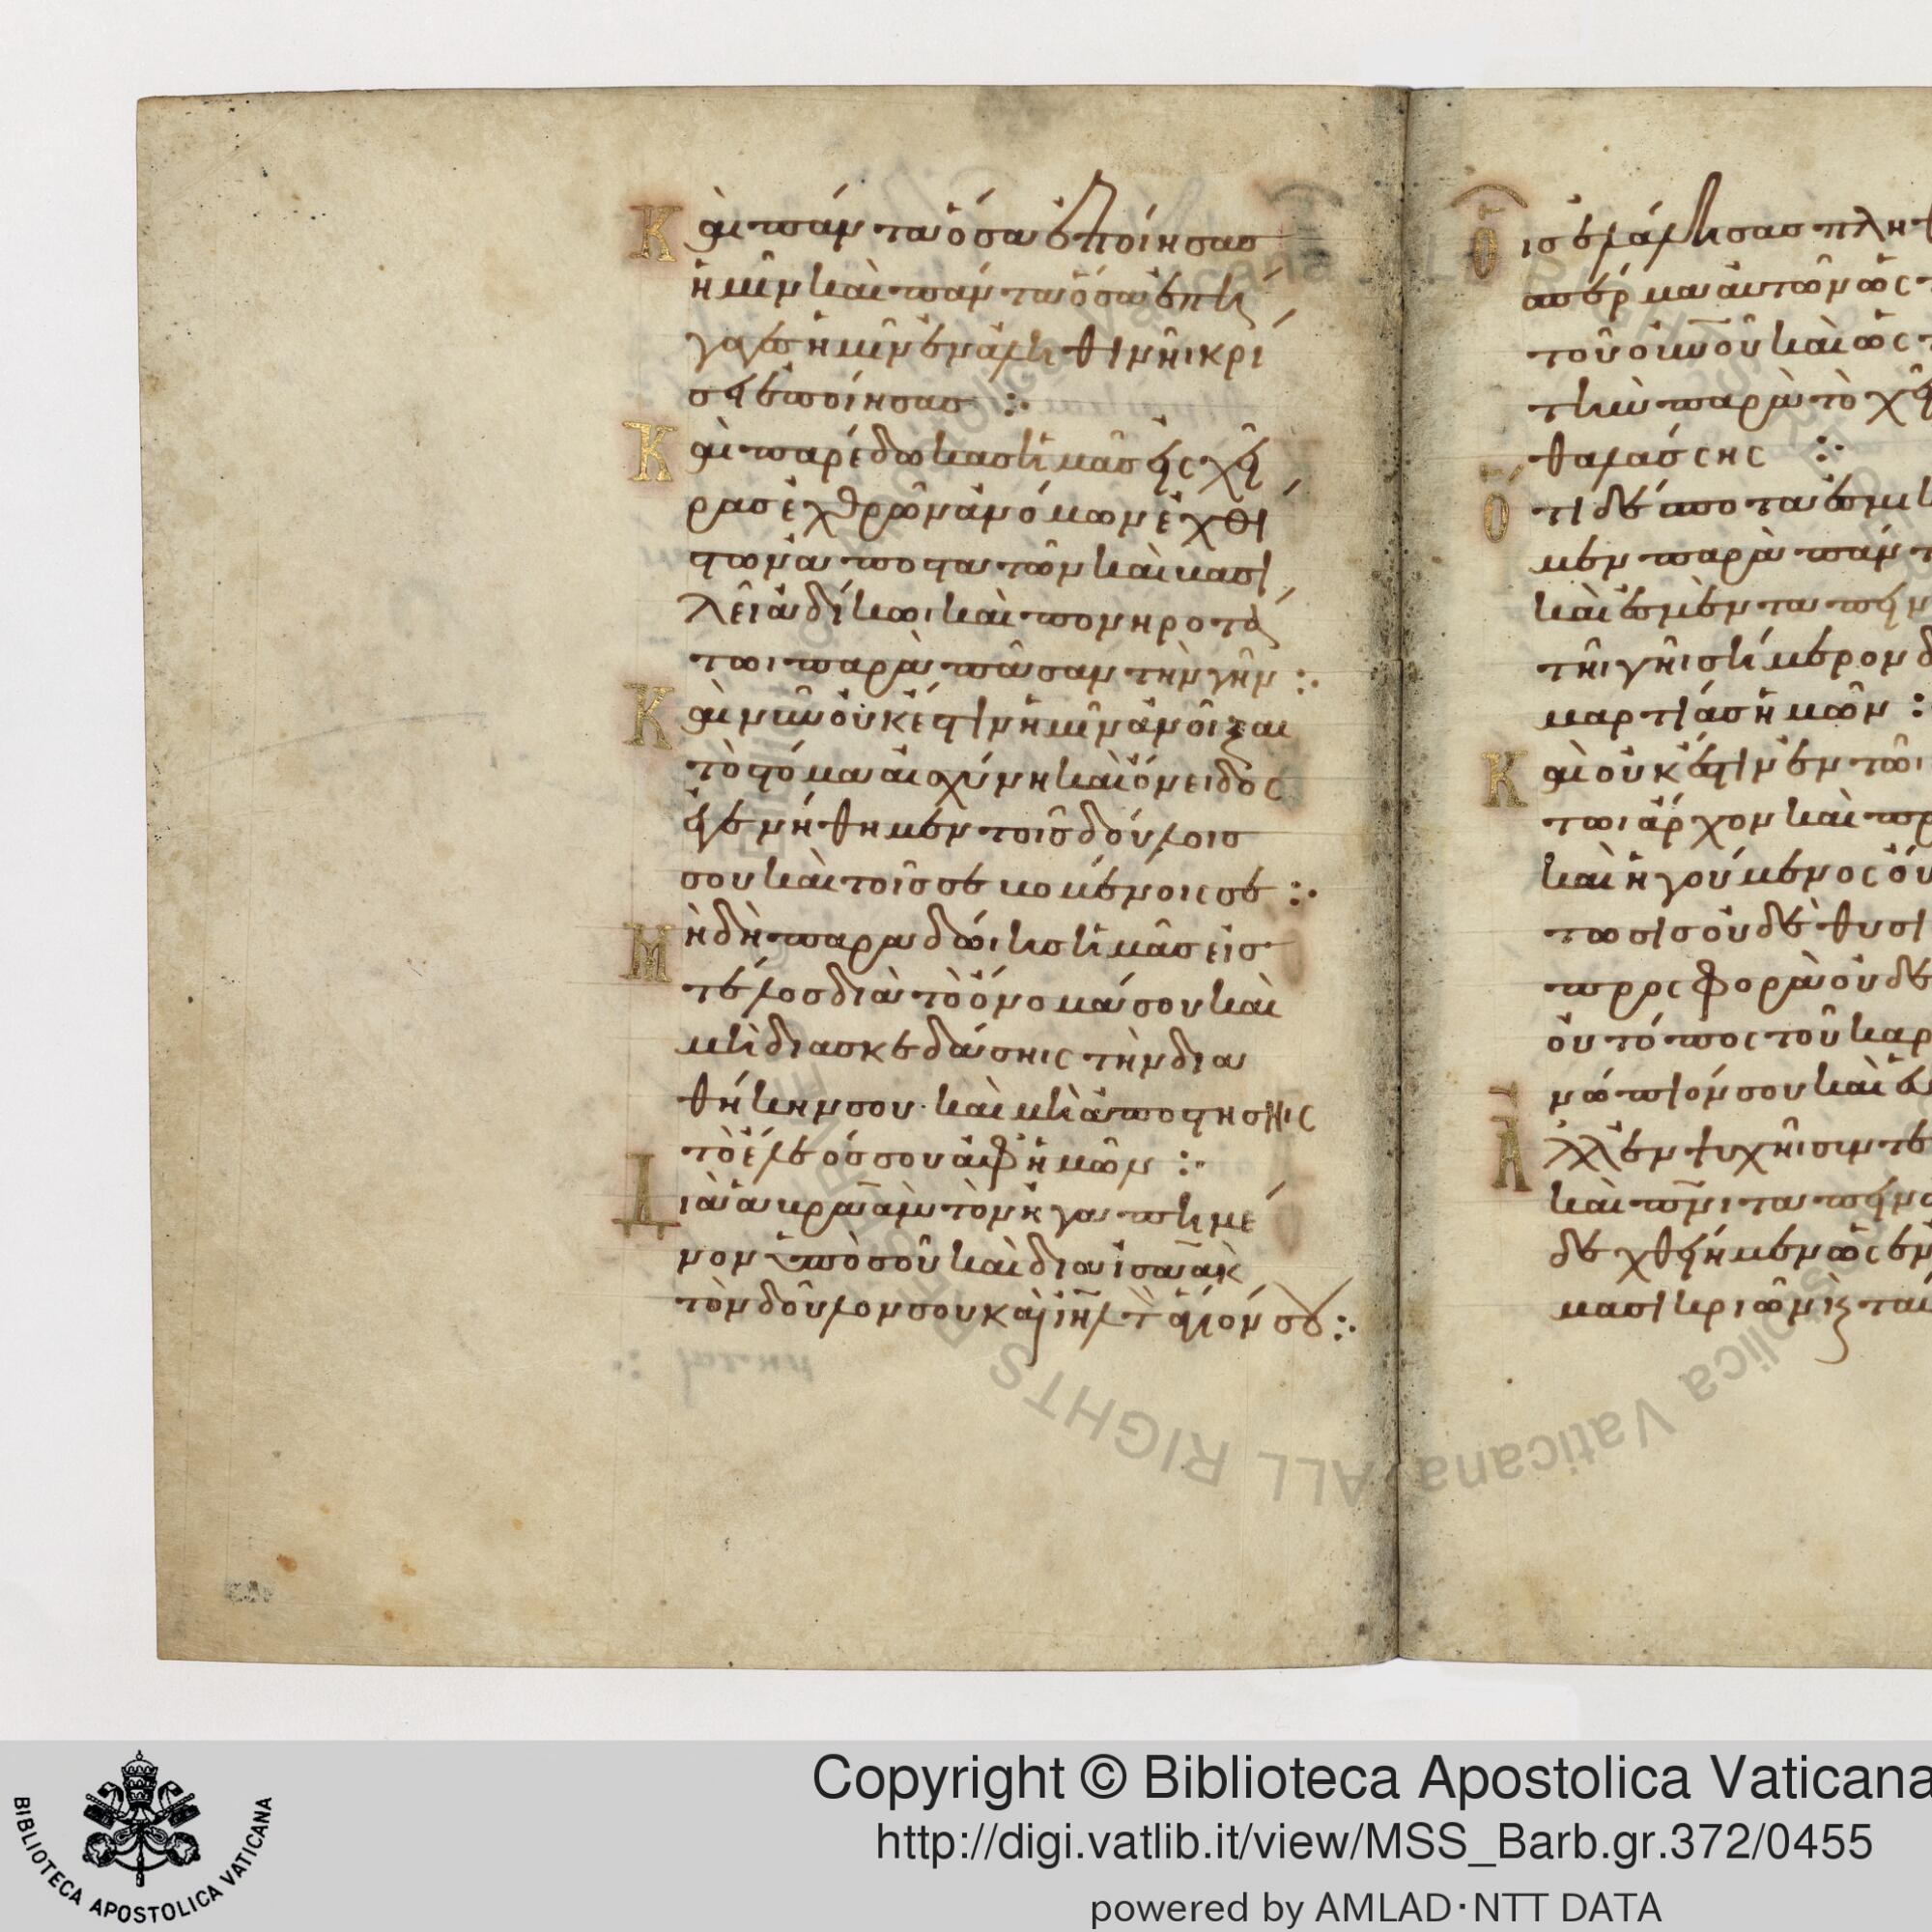 Καὶ πάντα ὅσα ἐποίησας
ἡμῖν καὶ πάντα ὅσα ἐπή
γαγες ἡμῖν ἐν ἀληθινῆι κρί
σει ἐποίησας :·
Καὶ παρέδωκας ἡμᾶς εἰς χεῖ
ρας ἐχθρῶν ἀνόμων ἐχθί
στων ἀποστατῶν καὶ βασι
λεῖ ἀδίκωι καὶ πονηροτά
τωι παρὰ πᾶσαν τὴν γῆν :·
Καὶ νῦν οὐκ ἔστιν ἡμῖν ἀνοῖξαι
τὸ στόμα αἰσχύνη καὶ ὄνειδος
ἐγενήθημεν τοῖς δούλοις
σου καὶ τοῖς σεβομένοις σε :·
Μὴ δὴ παραδώιης ἡμᾶς εἰς
τέλος διὰ τὸ ὄνομά σου καὶ
μὴ διασκεδάσηις τὴν δια
θήκην σου· καὶ μὴ ἀποστήσηις
τὸ ἔλεός σου ἀφ ἡμῶν :·
Διὰ ἁβραὰμ τὸν ἠγαπημέ
νον ὑπὸ σοῦ καὶ διὰ ἰσαὰκ
τὸν δοῦλον σου καὶ ιηλ τ ἅγιόν σου :·
Οἷς ἐλάλησας πλη
σπέρμα αὐτῶν ὡς
τοῦ οὐνοῦ καὶ ὡς τ
τὴν παρὰ τὸ χεῖ
θαλάσσης :·
Ὅτι δέσποτα ἐσμι
μεν παρὰ πάν
καὶ ἐσμὲν ταπειν
τῆι γῆι σήμερον δ
μαρτίας ἡμῶν :
Καὶ οὐκ ἔστιν ἐν τῶι
τωι ἄρχων καὶ πρ
καὶ ἡγούμενος οὐ
τωσις οὐδὲ θυσί
προσφορὰ οὐδε
οὐ τόπος τοῦ καρ
νώπιόν σου καὶ ε
Ἀλλ ἐν ψυχῆι συντε
καὶ πνι ταπεινο
δεχθείημεν ὡς ἐν
μασι κριῶν κ τα
Copyright © Biblioteca Apostolica Vaticana
http://digi.vatlib.it/view/MSS_Barb.gr.372/0455
powered by AMLAD·NTT DATA
BIBLIOTECA APOSTOLICA VATICANA